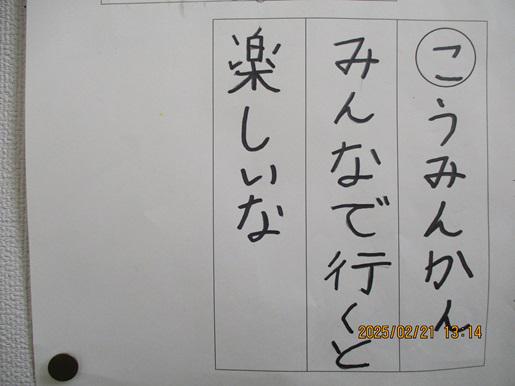 こうみんかん
みんなで行くと
楽しいな
2025/02/21 13:14